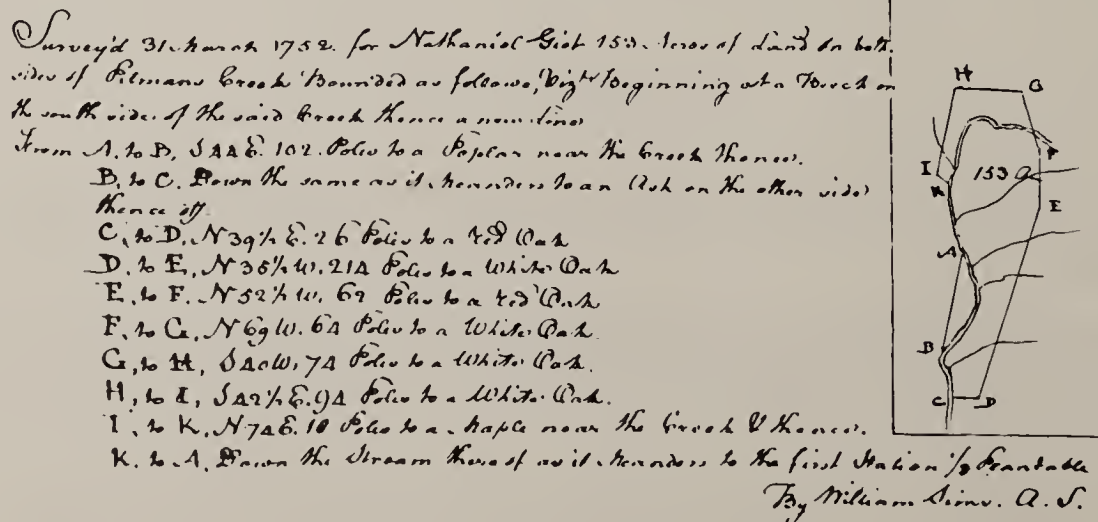 Survey'd 31. March 1752. for Nathaniel Gist 153. Acres of Land on both
sides of Pitmans Creek Bounded as follows, Vizt. Beginning at a Beech on
the south side of the said Creek thence a new line
From A. to B, S44E. 102. Poles to a Poplar near the Creek thence.
B. to C. Down the same as it Meanders to an Ash on the other side
thence off
C, to D. N39½ E. 26 Poles to a red Oak
D. to E, N35½ W. 214 Poles to a White Oak
E. to F. N52½ W. 62 Poles to a red Oak
F. to G. N69 W. 64 Poles to a White Oak.
G, to H, S40W. 74 Poles to a White Oak.
H, to I, S42½ E. 94 Poles to a White Oak.
I, to K, N74E. 10 Poles to a Maple near the Creek & thence.
K. to A. Down the Stream thereof as it Meanders to the first Station
By William Sims. A. S.
H
G
F
I
153
K
E
A
B
C
D